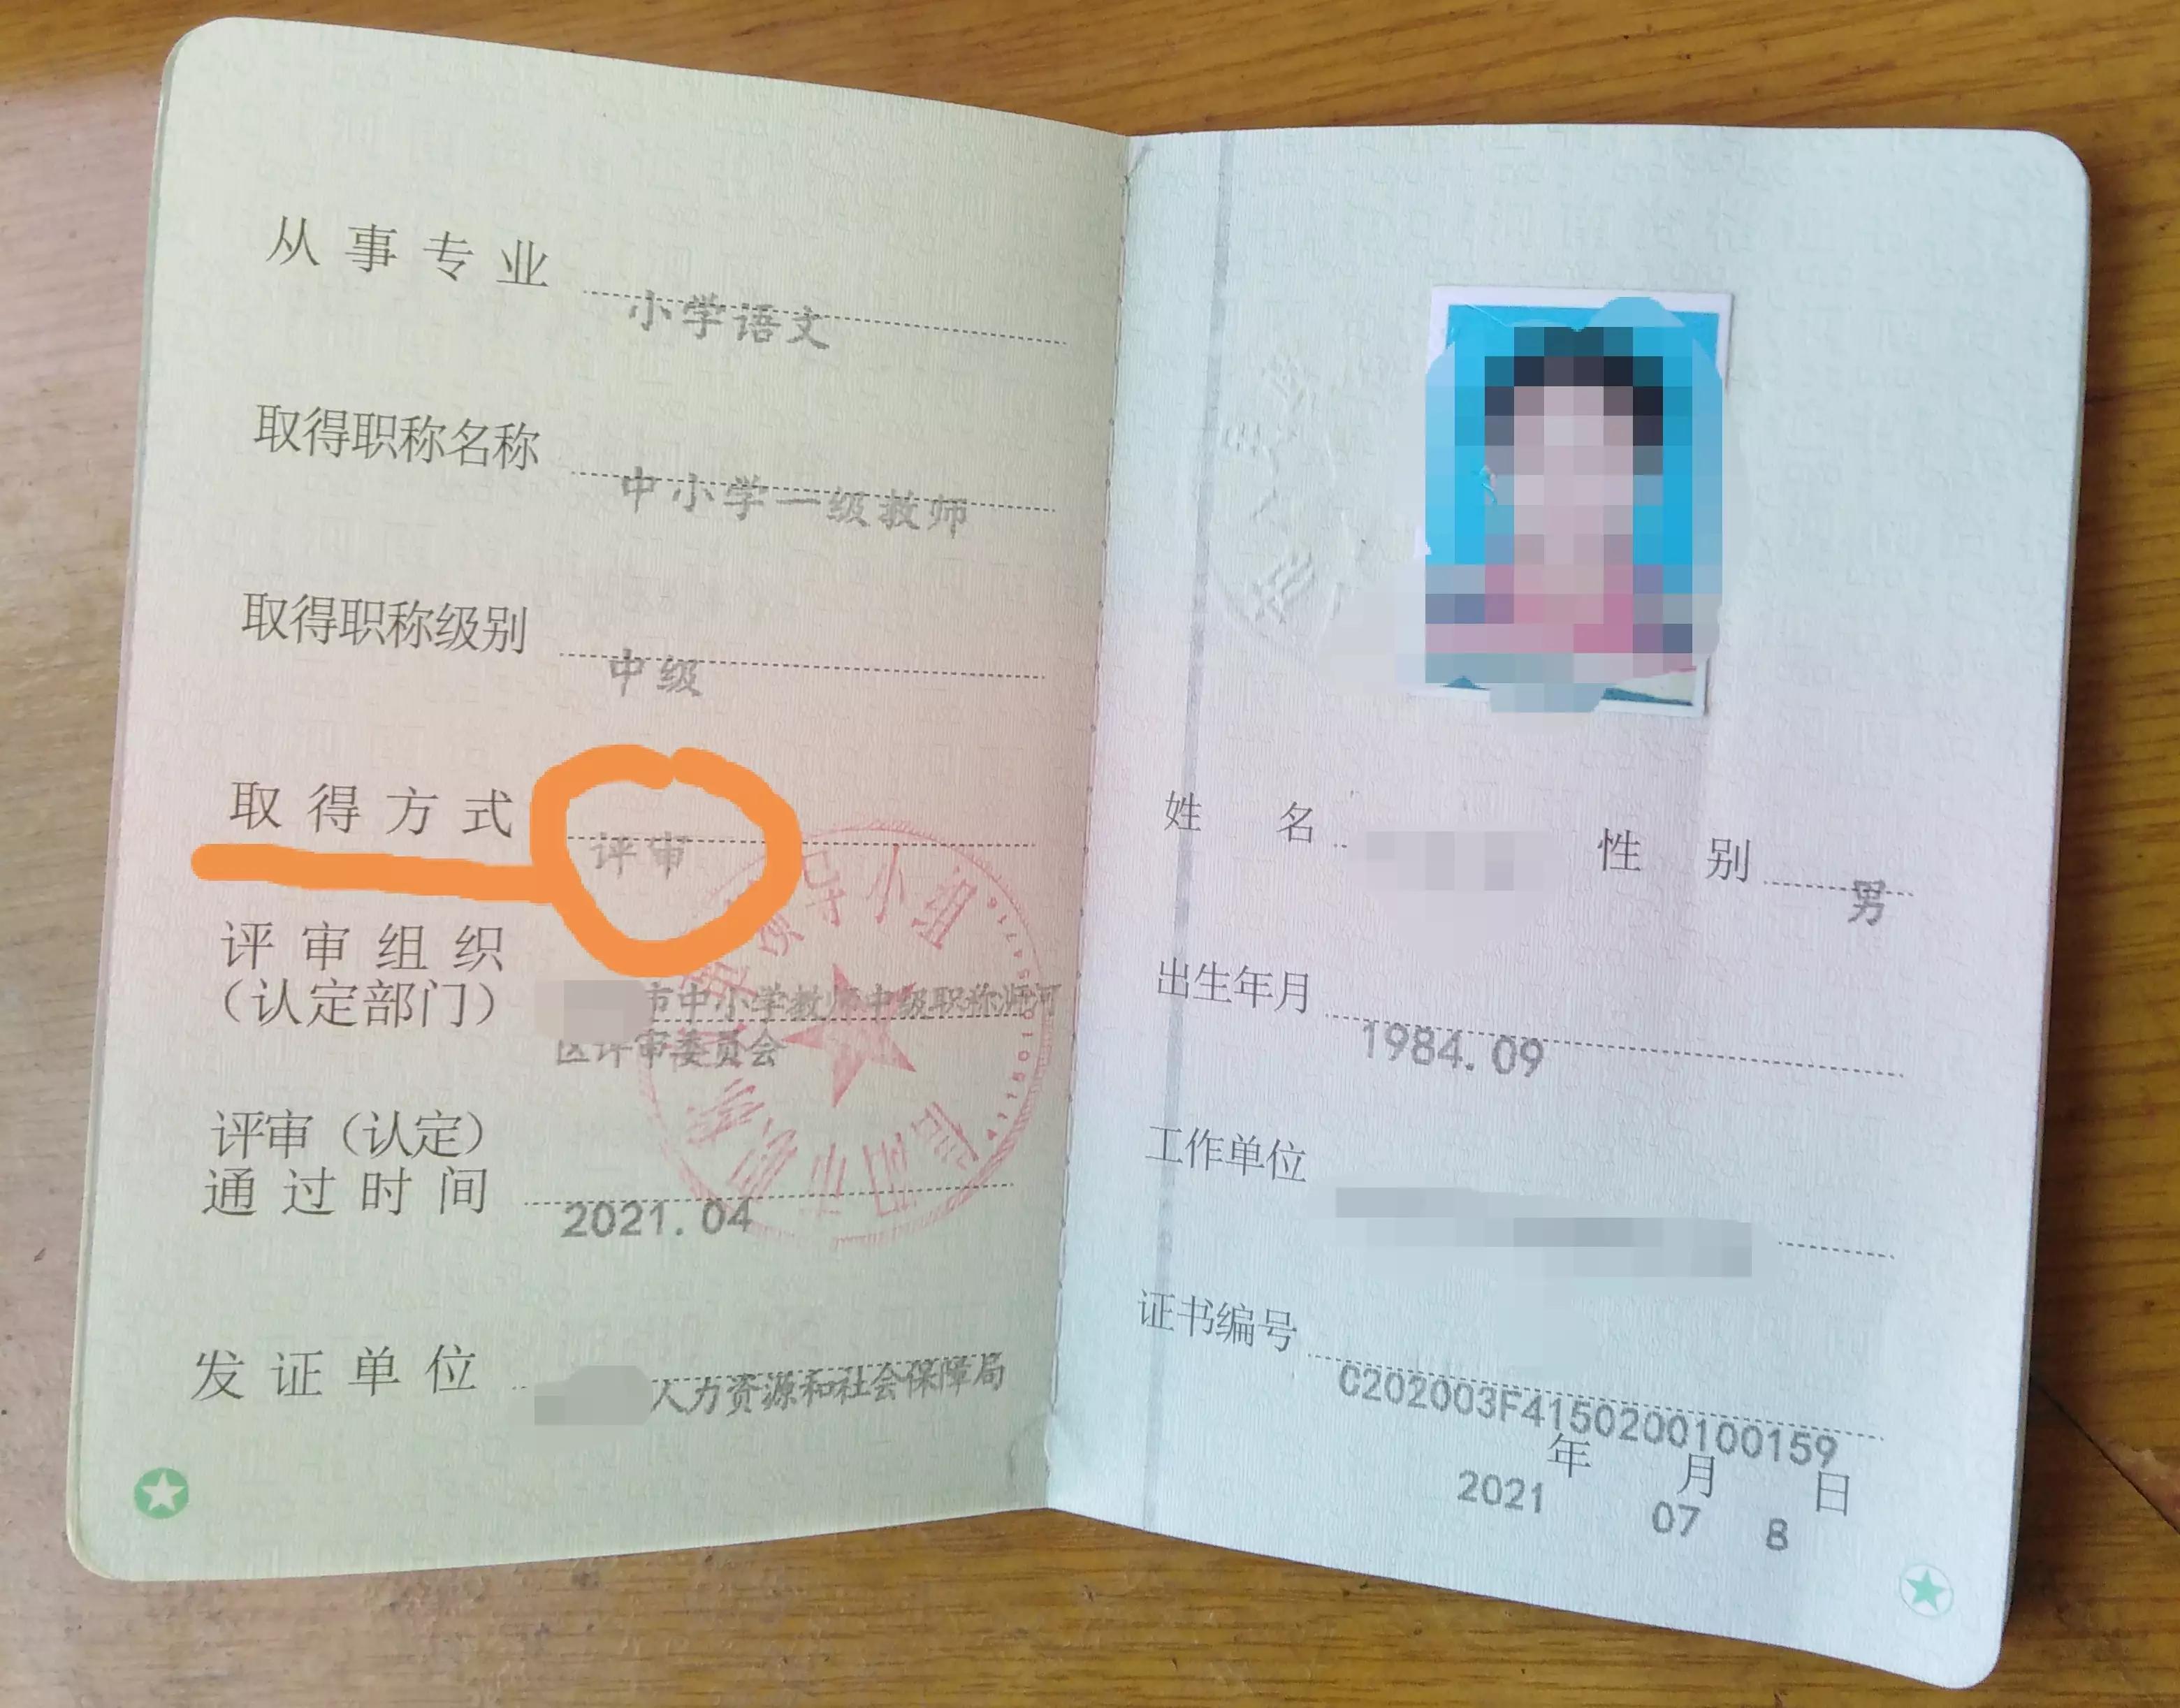 从事专业 小学语文
取得职称名称 中小学一级教师
取得职称级别 中级
取得方式 评审
评审组织
（认定部门） 市中小学教师中级职称浉河
区评审委员会
评审（认定）
通过时间 2021.04
发证单位 人力资源和社会保障局
领导小组
姓名 性别 男
出生年月 1984.09
工作单位
证书编号 C202003F4150200100159
年 月 日
2021 07 8